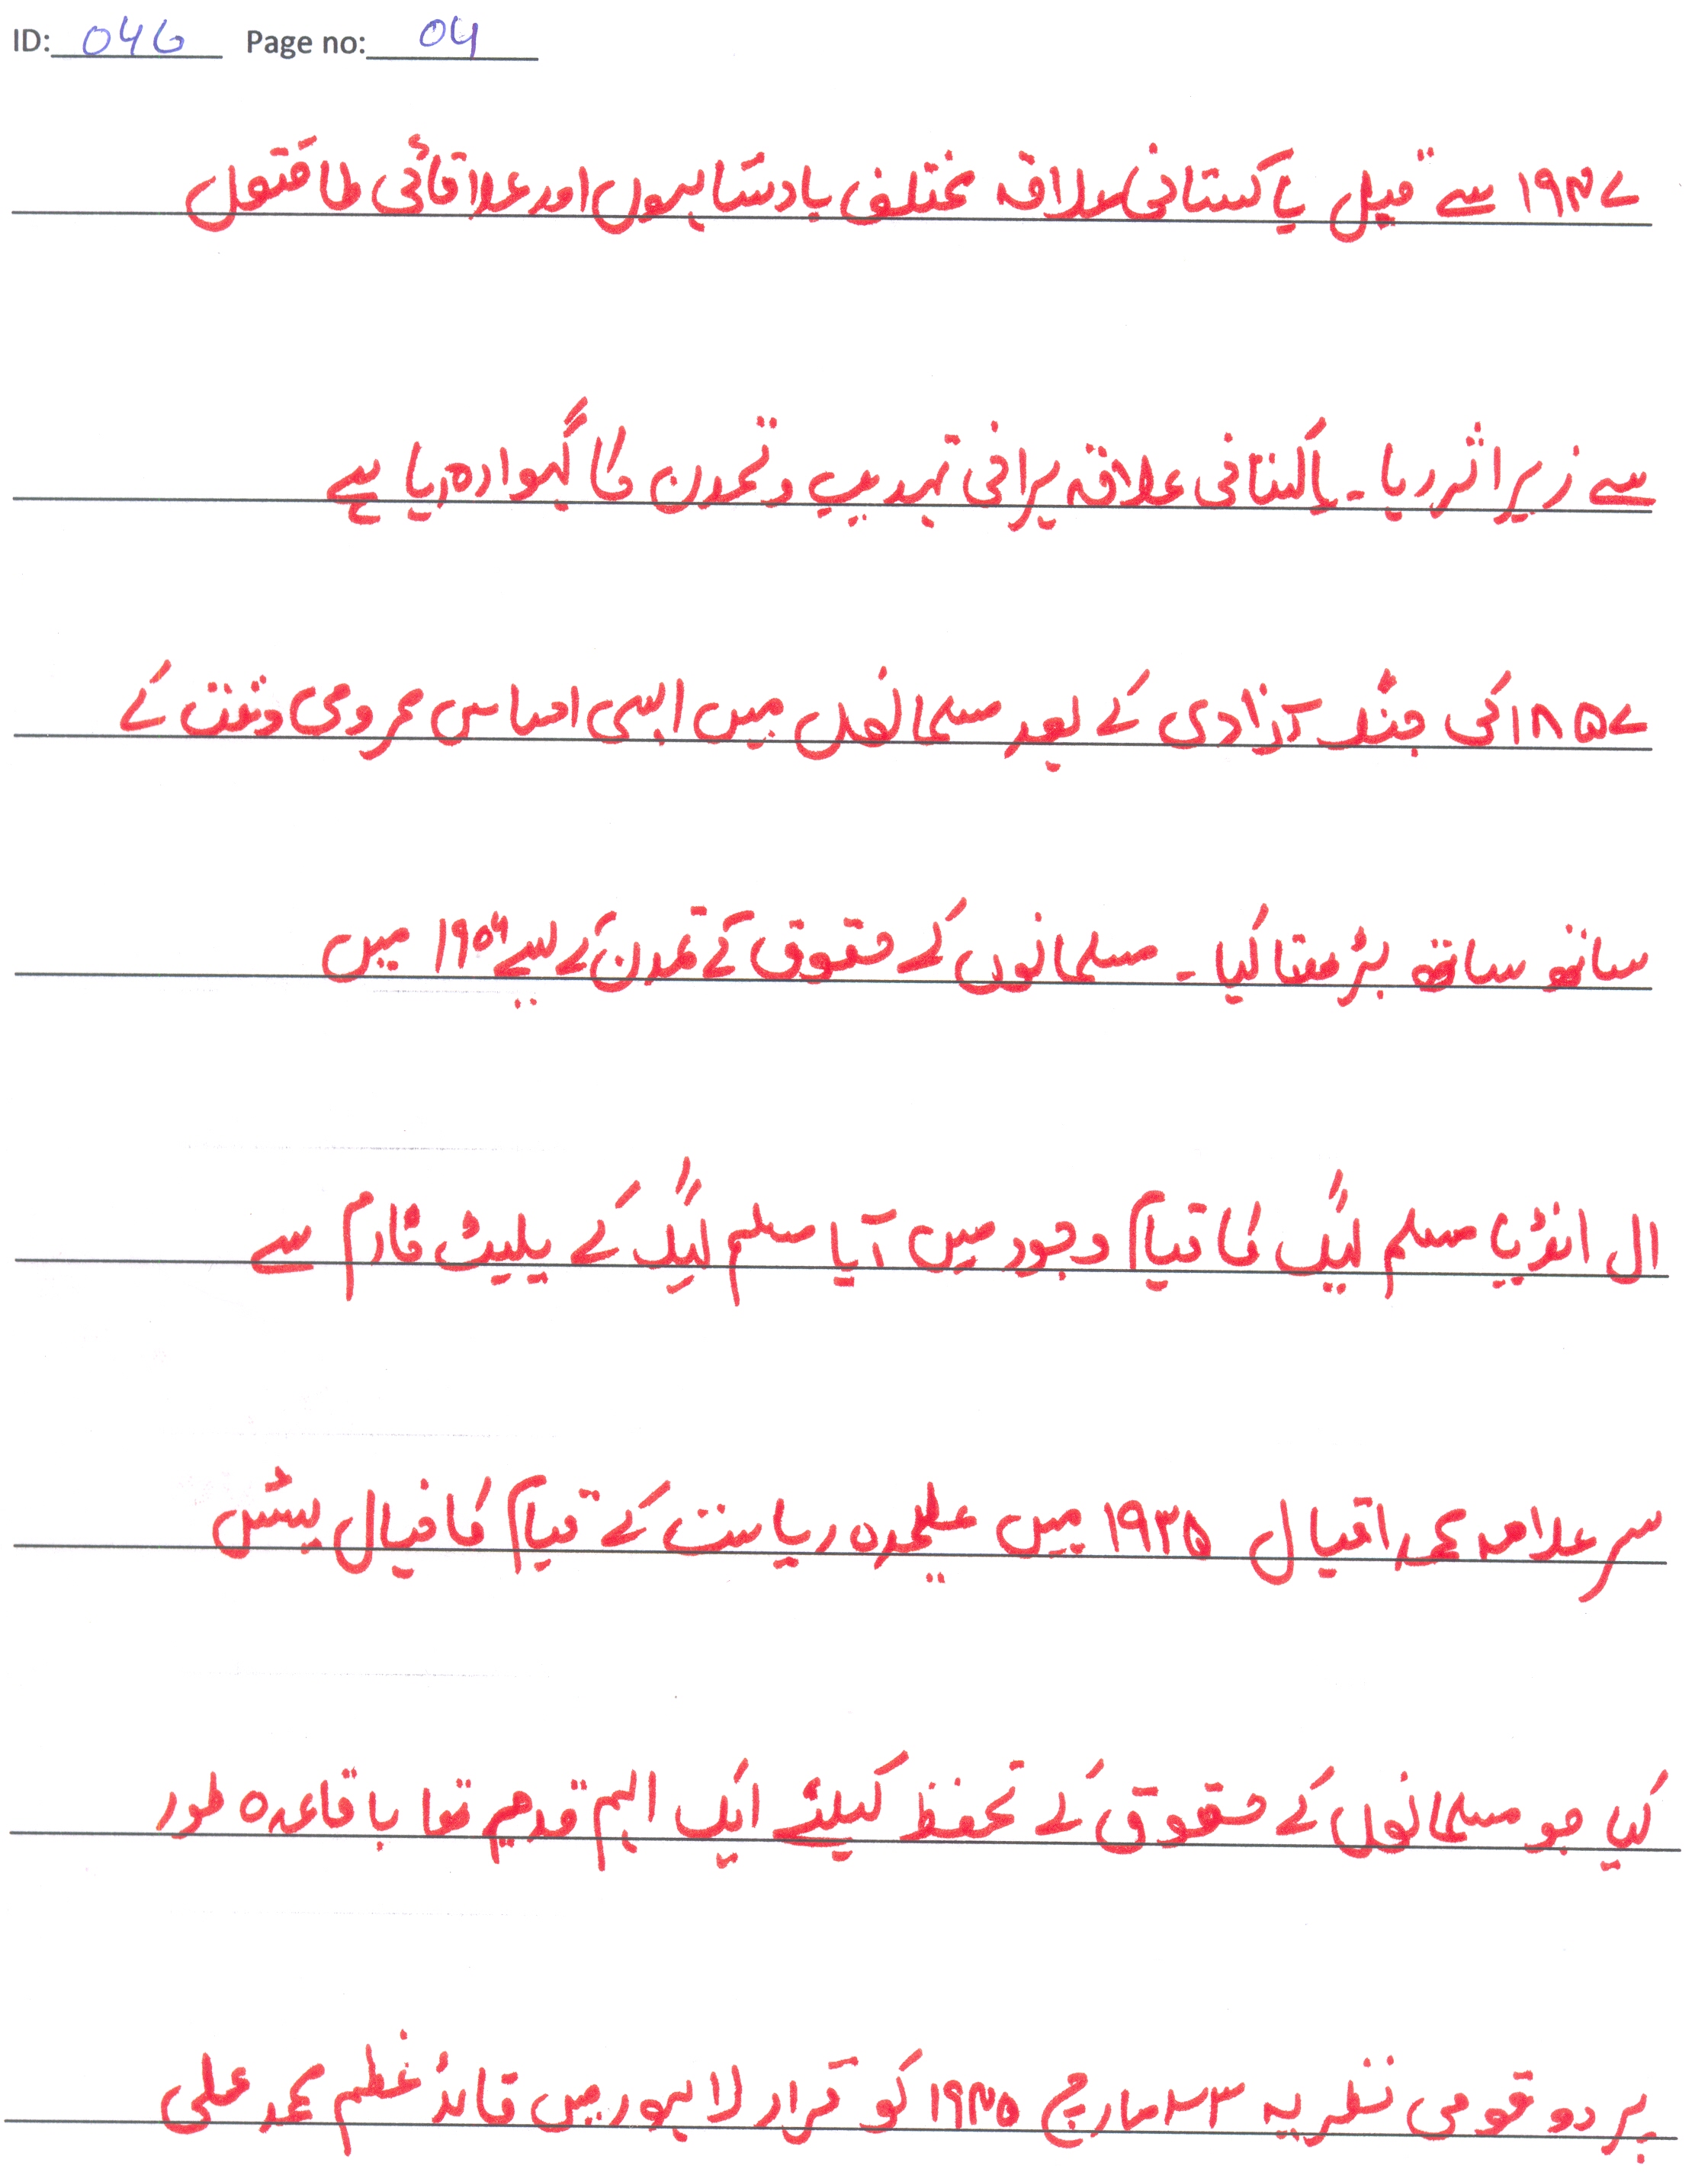 ID: 046 Page no: 04
۱۹۴۷ سے قبل پاکستانی علاقہ مختلف بادشاہوں اور علاقائی طاقتوں
سے زیر اثر رہا۔ پاکستانی علاقہ پرانی تہذیب و تمدن کا گہوارہ رہا ہے
۱۸۵۷ کی جنگ آزادی کے بعد مسلمانوں میں ایسی احساس محرومی وقت کے
ساتھ ساتھ بڑھتا گیا۔ مسلمانوں کے حقوق کے تمدن کے لیے ۱۹۰۶ میں
ال انڈیا مسلم لیگ کا قیام وجود میں آیا مسلم لیگ کے پلیٹ فارم سے
سر علامہ محمد اقبال ۱۹۳۵ میں علیحدہ ریاست کے قیام کا خیال پیش
کیا جو مسلمانوں کے حقوق کے تحفظ کیلئے ایک اہم قدم تھا باقاعدہ طور
پر دو قومی نظریہ ۲۳ مارچ ۱۹۴۵ کو قرار لاہور میں قائد عظم محمد علی